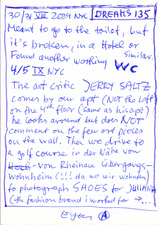 30/31 VIII 2009 NYC DREAMS 135
Meant to go to the toilet, but
it's broken, in a Hotel or
Similar.
Found another working WC
4/5 IX NYC
The art critic JERRY SALTZ
comes by our apt (NOT the loft)
on the 4th floor (same as his age)
he looks around but does NOT
comment on the few art pieces
on the wall. Then we drive to
a golf course in der Nähe von
von Rheinau Übergangs-
wohnheim (!!! da wo wir wohnten)
to photograph SHOES for JULIANA
(the fashion brand i worked for →...